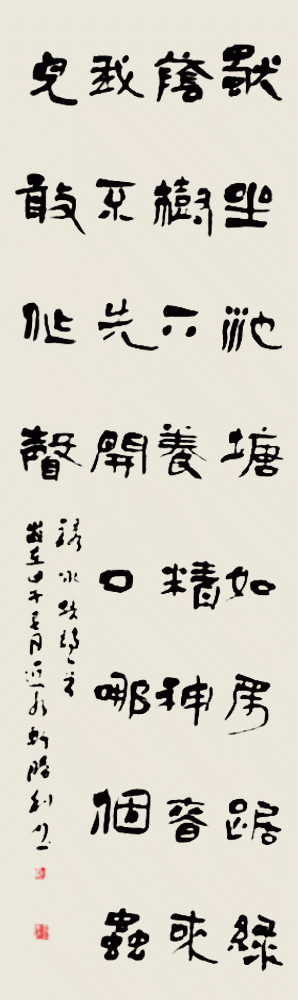 獨坐池塘如虎踞綠
蔭樹下養精神春來
我不先開口哪個蟲
兒敢作聲
歲在甲午月